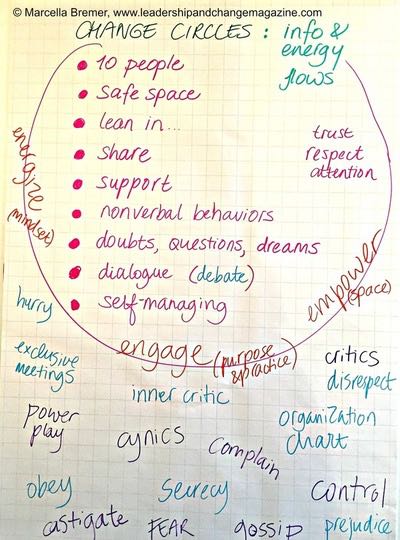 © Marcella Bremer, www.leadershipandchangemagazine.com
CHANGE CIRCLES: info &
energy
flows
10 people
safe space
lean in...
share
support
nonverbal behaviors
doubts, questions, dreams
dialogue (debate)
self-managing
trust
respect
attention
energize
(mindset)
empower
(space)
engage (purpose
& practice)
hurry
exclusive
meetings
inner critic
critics
disrespect
power
play
cynics
complain
organization
chart
obey
secrecy
control
castigate
FEAR
gossip
prejudice